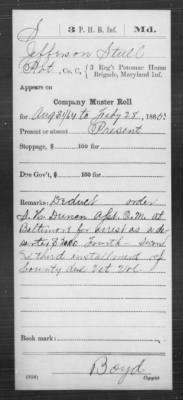 S | 3 P. H. B. Inf. | Md.
Jefferson Stull
Pvt, Co. C, 3 Reg't Potomac Home
Brigade, Maryland Inf.
Appears on
Company Muster Roll
for Aug 31/64 to Feby 28, 1865.
Present or absent Present
Stoppage, $ 100 for
Due Gov't, $ 100 for
Remarks: Deduct order
Asst. Q.M. at
Baltimore for arrest as a de-
serter Fourth
& third installment of
bounty due Vet Vol.
Book mark:
Boyd
(858) Copyist.